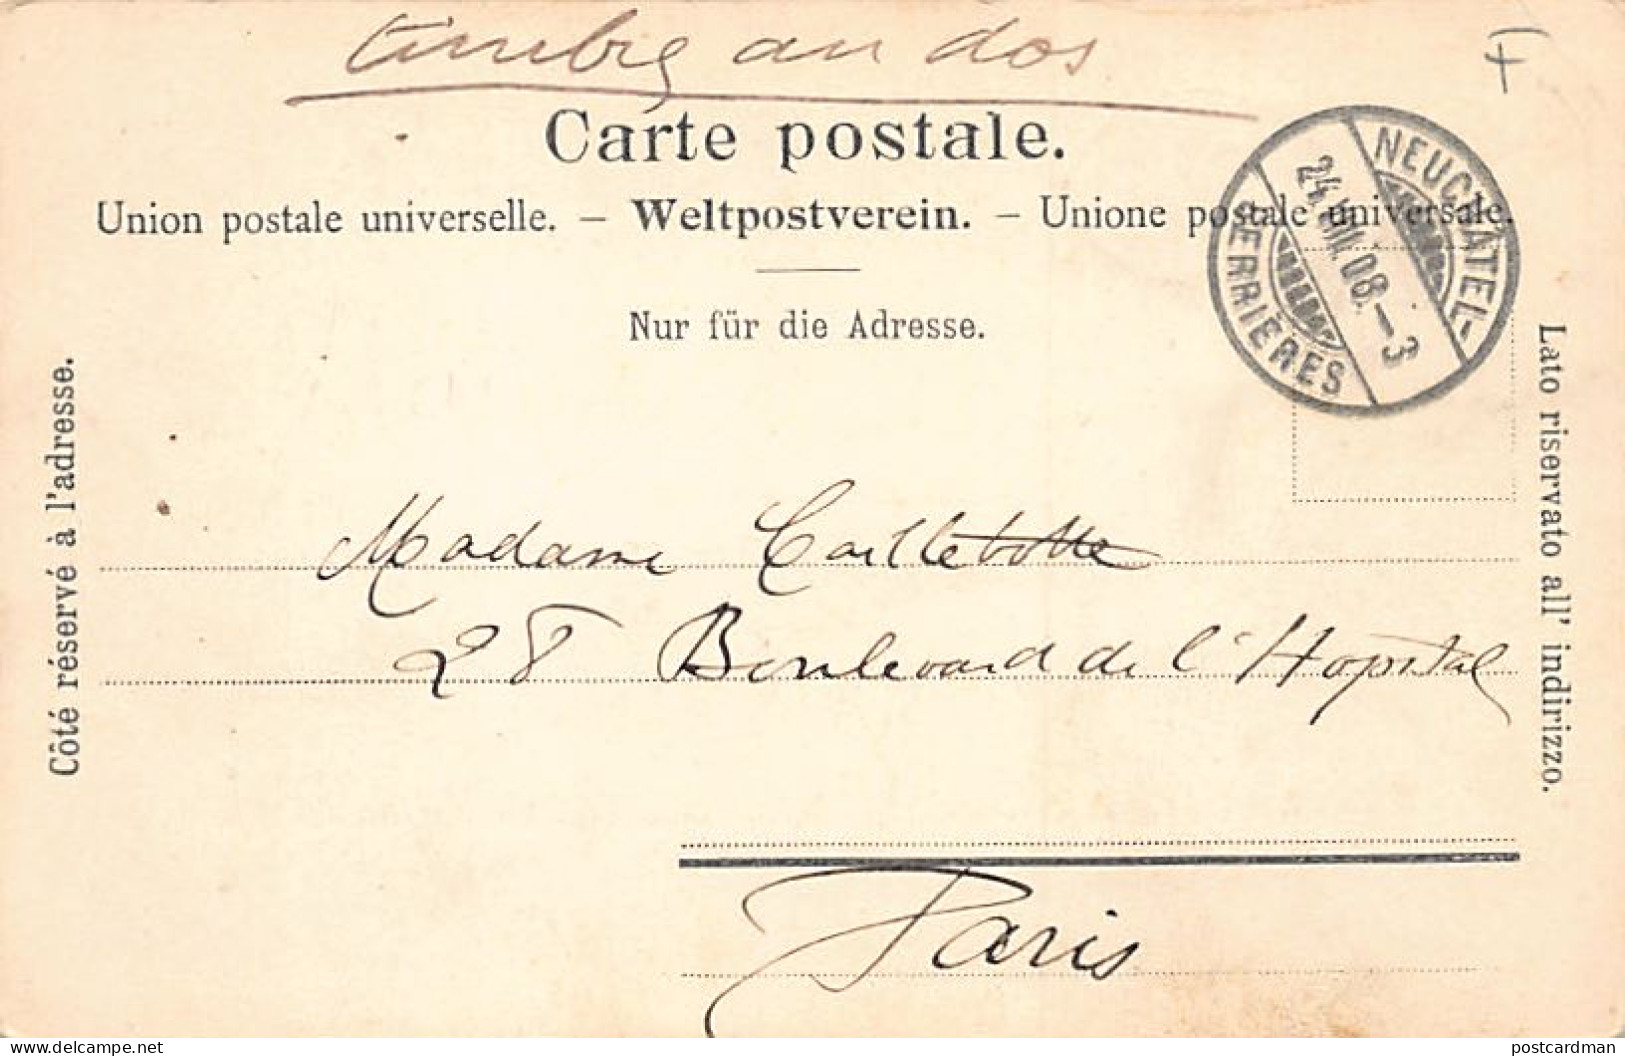 timbre au dos
F
Carte postale.
Union postale universelle. – Weltpostverein. – Unione postale universale.
Nur für die Adresse.
NEUCHÂTEL-
24. VIII. 08. – 3
SERRIÈRES
Côté réservé à l'adresse.
Lato riservato all' indirizzo.
Madame Caillebotte
28 Boulevard de l'Hopital
Paris
www.delcampe.net
postcardman